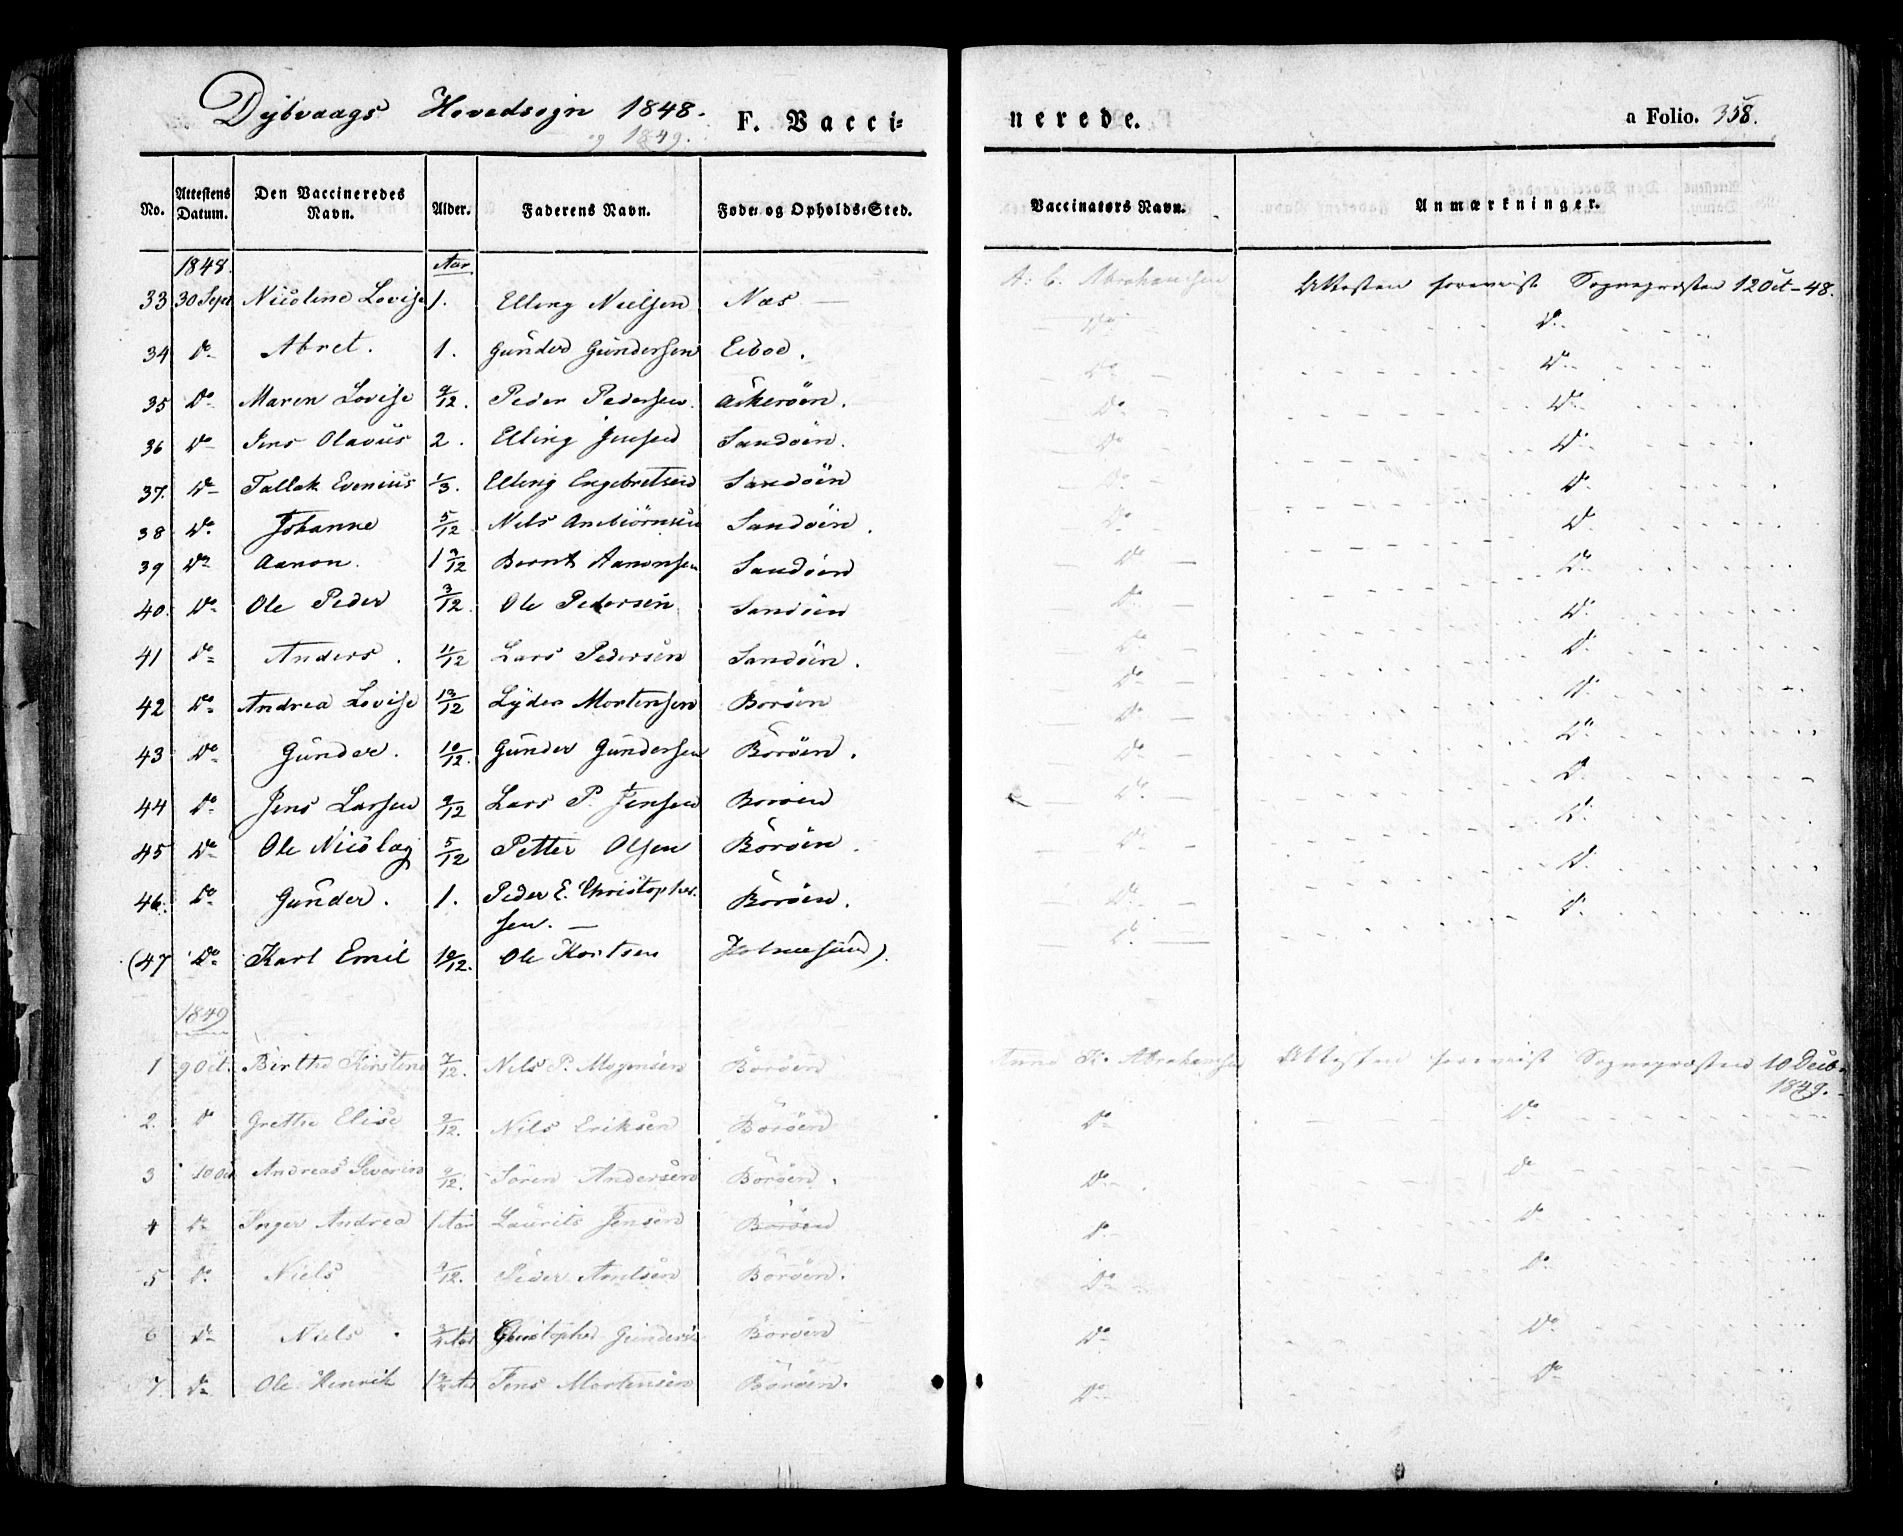 Dybvaags Hovedsogn 1848. F. Vacci=nerede. a Folio. 358.
og 1849.
No. | Attestens Datum. | Den Vaccineredes Navn. | Alder. | Faderens Navn. | Føde= og Opholds=Sted. | Vaccinatørs Navn. | Anmærkninger.
1848. Aar
33 | 30 Sept | Nicoline Lovise | 1. | Elling Nielsen | Næs — | A. C. Abrahamsen | Attesten foreviist Sognepræsten 12 Oct - 48.
34 | Do | Abret. | 1. | Gunder Gundersen | Eiboe. | Do | Do
35 | Do | Maren Lovise | 9/12. | Peder Pedersen. | Askerøen. | Do | Do
36 | Do | Jens Olavus | 2. | Elling Jensen | Sandøen. | Do | Do
37. | Do | Tallak Evenius | 1/3. | Elling Engebretsen | Sandøen | Do | Do
38 | Do | Johanne | 5/12 | Nils Anbiörnsen | Sandøen. | Do | Do
39 | Do | Aanon. | 1 9/12 | Bernt Aanonsen | Sandøen | Do | Do
40. | Do | Ole Peder | 3/12. | Ole Pedersen | Sandøen | Do | Do
41 | Do | Anders. | 11/12 | Lars Pedersen | Sandøen. | Do | Do
42 | Do | Andrea Lovise | 13/12 | Lyder Mortensen | Borøen | Do | Do
43 | Do | Gunder. | 10/12. | Gunder Gundersen | Borøen. | Do | Do
44 | Do | Jens Larsen | 9/12 | Lars P. Jensen | Borøen | Do | Do
45 | Do | Ole Nicolay | 5/12 | Petter Olsen | Borøen. | Do | Do
46. | Do | Gunder. | 1. | Peder E. Christopher- | Borøen. | Do | Do
sen. —
(47 | Do | Karl Emil | 10/12. | Ole Knutsen | Holmesund). | Do | Do
1849
1 | 9 Oct. | Birthe Kirstine | 7/12. | Nils P. Mogensen | Borøen | Anne K. Abrahamsen | Attesten foreviist Sognepræsten 10 Decb.
1849.
2. | Do | Grethe Elise | 9/12. | Nils Eriksen | Borøen | Do | Do
3 | 10 Oct | Andreas Severin | 9/12. | Sören Andersen | Borøen. | Do | Do
4 | Do | Inger Andrea | 1 Aar | Laurits Jensen | Borøen | Do | Do
5 | Do | Niels | 9/12. | Peder Antsen | Borøen. | Do | Do
6 | Do | Niels. | 3/4 Aar | Christopher Gunders | Borøen | Do | Do
7. | Do | Ole Henrik | Aar | Jens Mortensen | Borøen. | Do | Do